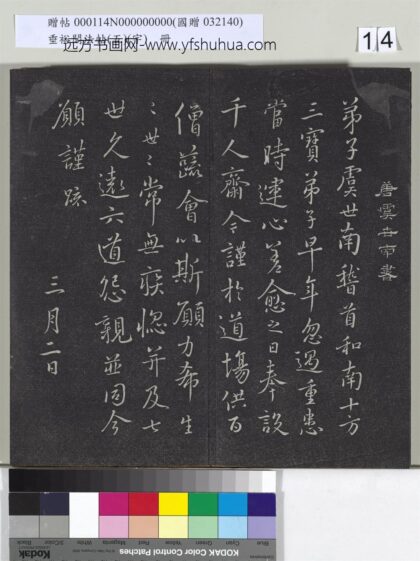 贈帖 000114N000000000(國贈 032140)
冊
远方书画网-www.yfshuhua.com
14
唐虞世南書
弟子虞世南稽首和南十方
三寶弟子早年忽遇重患
當時運心差愈之日奉設
千人齋今謹於道場供百
僧蔬會以斯願力希生
生世世常無疾惱并及七
世久遠六道怨親並同今
願謹疏
三月二日
Blue
Cyan
Green
Yellow
Red
Magenta
White
Black
KODAK Color Control Patches